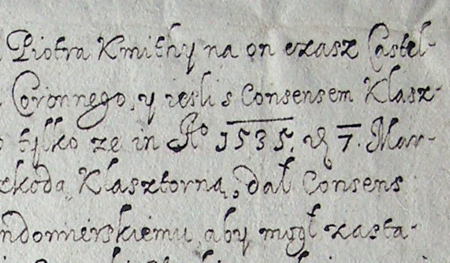 Piotra Kmithy na on czasz Castel-
Coronnego, y iesli s Consensem Klasz-
tylko ze in Aº 1535. d 7. Mar-
zkoda Klasztorną, dał Consens
ndomierskiemu, aby mógł zasta-